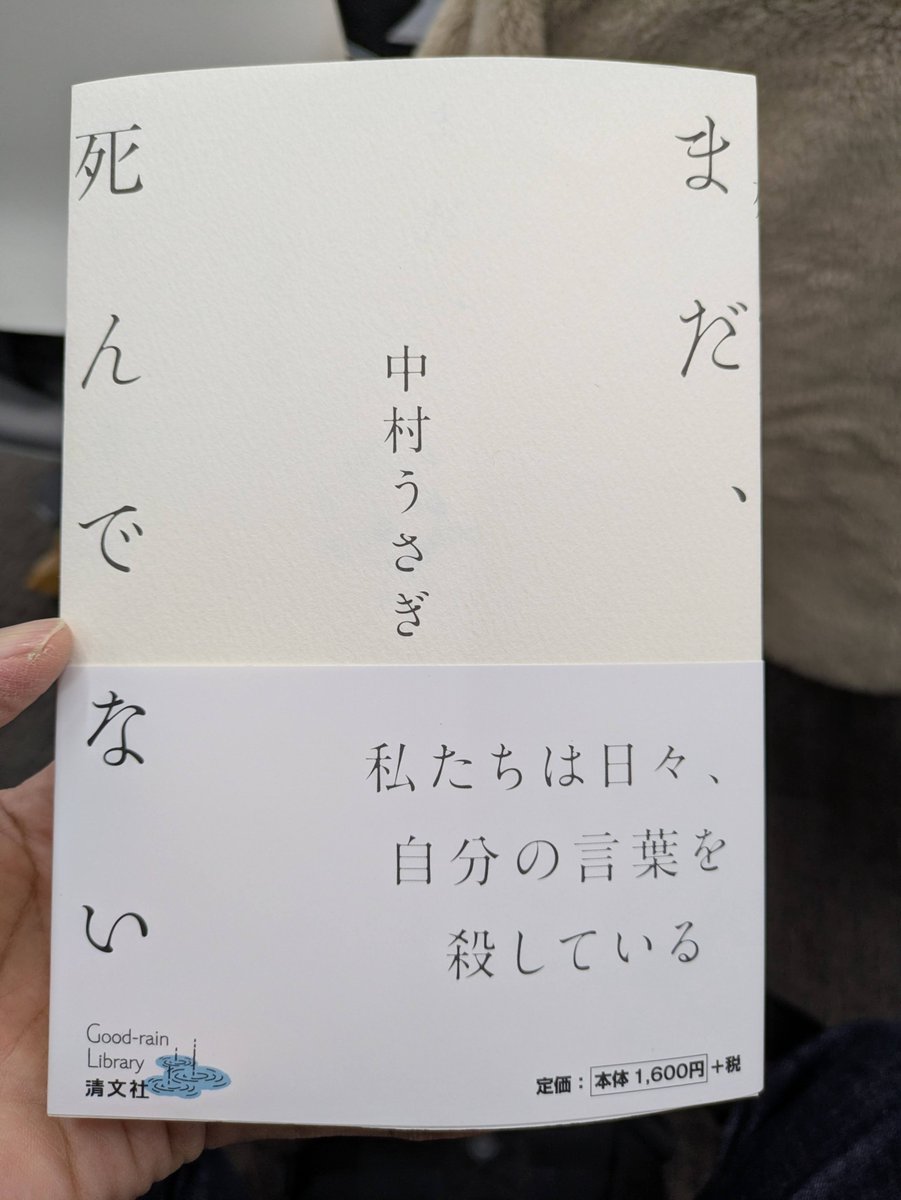 まだ、
死んでない
中村うさぎ
私たちは日々、
自分の言葉を
殺している
Good-rain
Library
清文社
定価：本体1,600円+税